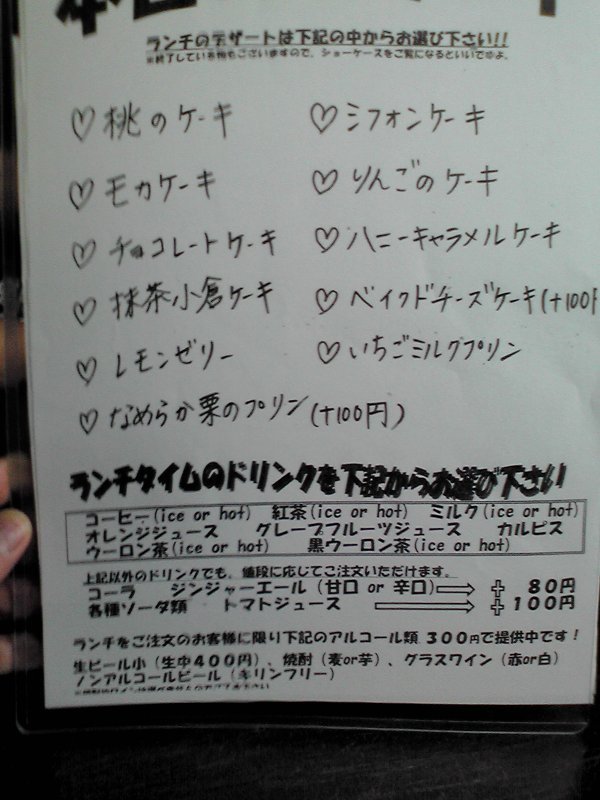 ランチのデザートは下記の中からお選び下さい!!
※終了している場合もございますので、ショーケースをご覧になるといいでやよ。
♡桃のケーキ ♡シフォンケーキ
♡モカケーキ ♡りんごのケーキ
♡チョコレートケーキ ♡ハニーキャラメルケーキ
♡抹茶小倉ケーキ ♡ベイクドチーズケーキ(+100円
♡レモンゼリー ♡いちごミルクプリン
♡なめらか栗のプリン(+100円)
ランチタイムのドリンクを下記からお選び下さい
コーヒー(ice or hot) 紅茶(ice or hot) ミルク(ice or hot)
オレンジジュース グレープフルーツジュース カルピス
ウーロン茶(ice or hot) 黒ウーロン茶(ice or hot)
上記以外のドリンクでも、値段に応じてご注文いただけます。
コーラ ジンジャーエール(甘口 or 辛口)⇒ + 80円
各種ソーダ類 トマトジュース ⇒ +100円
ランチをご注文のお客様に限り下記のアルコール類 300円で提供中です!
生ビール小(生中400円)、焼酎(麦or芋)、グラスワイン(赤or白)
ノンアルコールビール(キリンフリー)